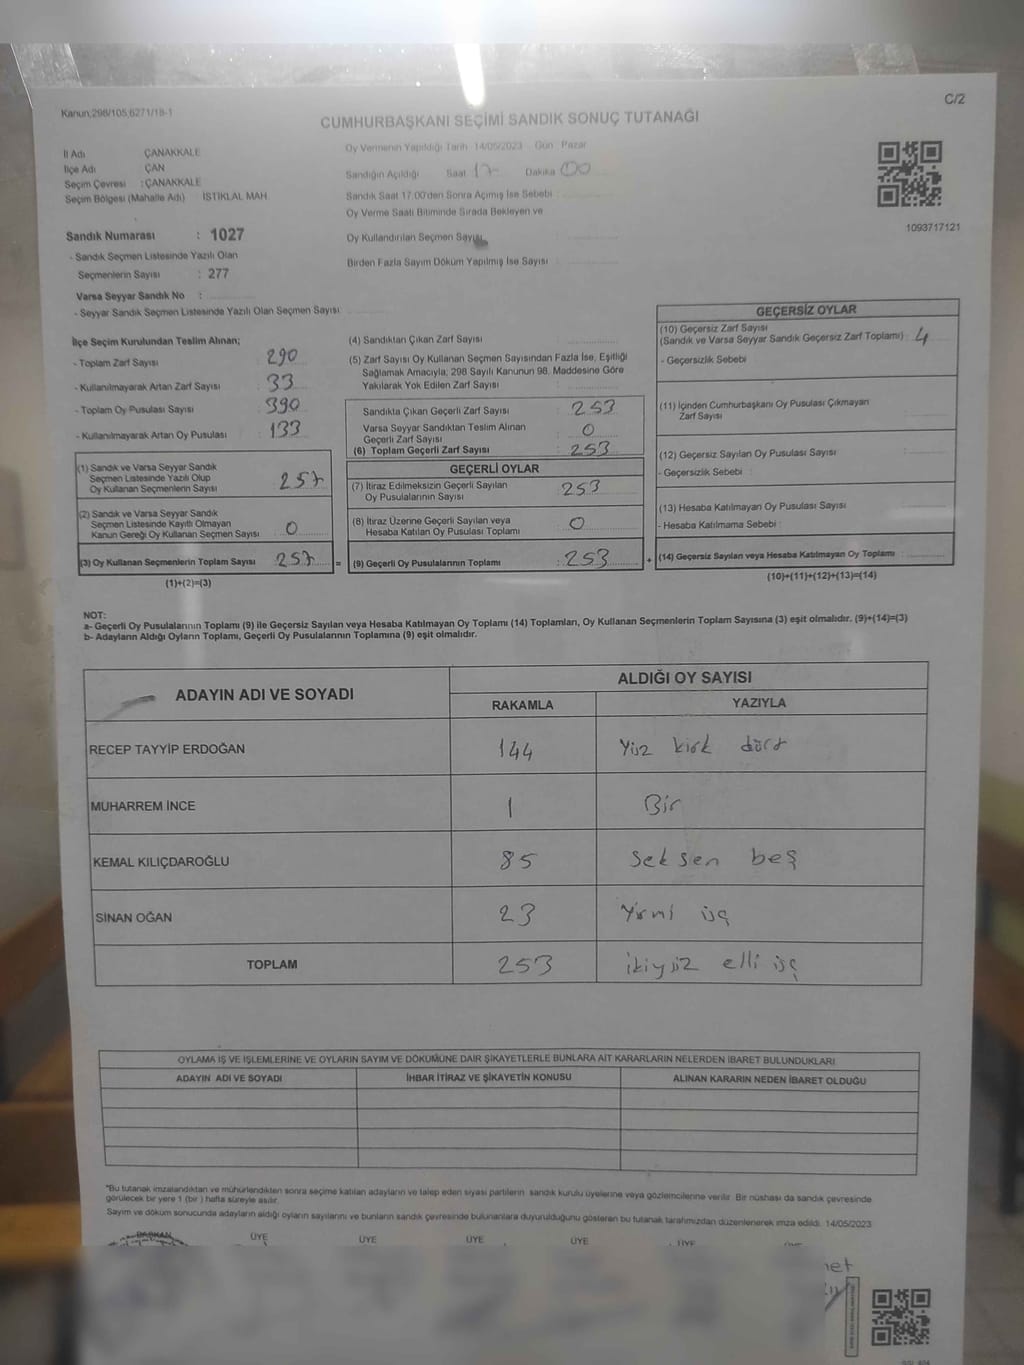 Kanun;298/105,6271/18-1
C/2
CUMHURBAŞKANI SEÇİMİ SANDIK SONUÇ TUTANAĞI
İl Adı ÇANAKKALE
İlçe Adı ÇAN
Seçim Çevresi : ÇANAKKALE
Seçim Bölgesi (Mahalle Adı) İSTİKLAL MAH.
Oy Vermenin Yapıldığı Tarih 14/05/2023 Gün Pazar
Sandığın Açıldığı Saat 17 Dakika 00
Sandık Saat 17.00'den Sonra Açımış İse Sebebi :
Oy Verme Saati Bitiminde Sırada Bekleyen ve
Oy Kullandırılan Seçmen Sayısı
Birden Fazla Sayım Döküm Yapılmış İse Sayısı :
1093717121
Sandık Numarası : 1027
- Sandık Seçmen Listesinde Yazılı Olan
Seçmenlerin Sayısı : 277
Varsa Seyyar Sandık No :
- Seyyar Sandık Seçmen Listesinde Yazılı Olan Seçmen Sayısı:
İlçe Seçim Kurulundan Teslim Alınan;
- Toplam Zarf Sayısı : 290
- Kullanılmayarak Artan Zarf Sayısı : 33
- Toplam Oy Pusulası Sayısı : 390
- Kullanılmayarak Artan Oy Pusulası : 133
(1) Sandık ve Varsa Seyyar Sandık
Seçmen Listesinde Yazılı Olup
Oy Kullanan Seçmenlerin Sayısı : 257
(2) Sandık ve Varsa Seyyar Sandık
Seçmen Listesinde Kayıtlı Olmayan
Kanun Gereği Oy Kullanan Seçmen Sayısı : 0
(3) Oy Kullanan Seçmenlerin Toplam Sayısı : 257 =
(1)+(2)=(3)
(4) Sandıktan Çıkan Zarf Sayısı :
(5) Zarf Sayısı Oy Kullanan Seçmen Sayısından Fazla İse, Eşitliği
Sağlamak Amacıyla, 298 Sayılı Kanunun 98. Maddesine Göre
Yakılarak Yok Edilen Zarf Sayısı :
Sandıkta Çıkan Geçerli Zarf Sayısı : 253
Varsa Seyyar Sandıktan Teslim Alınan
Geçerli Zarf Sayısı : 0
(6) Toplam Geçerli Zarf Sayısı : 253
GEÇERLİ OYLAR
(7) İtiraz Edilmeksizin Geçerli Sayılan
Oy Pusulalarının Sayısı : 253
(8) İtiraz Üzerine Geçerli Sayılan veya
Hesaba Katılan Oy Pusulası Toplamı : 0
(9) Geçerli Oy Pusulalarının Toplamı : 253 +
GEÇERSİZ OYLAR
(10) Geçersiz Zarf Sayısı
(Sandık ve Varsa Seyyar Sandık Geçersiz Zarf Toplamı) : 4
- Geçersizlik Sebebi :
(11) İçinden Cumhurbaşkanı Oy Pusulası Çıkmayan
Zarf Sayısı :
(12) Geçersiz Sayılan Oy Pusulası Sayısı :
- Geçersizlik Sebebi :
(13) Hesaba Katılmayan Oy Pusulası Sayısı :
- Hesaba Katılmama Sebebi :
(14) Geçersiz Sayılan veya Hesaba Katılmayan Oy Toplamı :
(10)+(11)+(12)+(13)=(14)
NOT:
a- Geçerli Oy Pusulalarının Toplamı (9) ile Geçersiz Sayılan veya Hesaba Katılmayan Oy Toplamı (14) Toplamları, Oy Kullanan Seçmenlerin Toplam Sayısına (3) eşit olmalıdır. (9)+(14)=(3)
b- Adayların Aldığı Oyların Toplamı, Geçerli Oy Pusulalarının Toplamına (9) eşit olmalıdır.
ADAYIN ADI VE SOYADI
ALDIĞI OY SAYISI
RAKAMLA YAZIYLA
RECEP TAYYİP ERDOĞAN 144 Yüz kırk dört
MUHARREM İNCE 1 Bir
KEMAL KILIÇDAROĞLU 85 Seksen beş
SİNAN OĞAN 23 Yirmi üç
TOPLAM 253 ikiyüz elli üç
OYLAMA İŞ VE İŞLEMLERİNE VE OYLARIN SAYIM VE DÖKÜMÜNE DAİR ŞİKAYETLERLE BUNLARA AİT KARARLARIN NELERDEN İBARET BULUNDUKLARI
ADAYIN ADI VE SOYADI İHBAR İTİRAZ VE ŞİKAYETİN KONUSU ALINAN KARARIN NEDEN İBARET OLDUĞU
*Bu tutanak imzalandıktan ve mühürlendikten sonra seçime katılan adayların ve talep eden siyasi partilerin sandık kurulu üyelerine veya gözlemcilerine verilir. Bir nüshası da sandık çevresinde
görülecek bir yere 1 (bir ) hafta süreyle asılır.
Sayım ve döküm sonucunda adayların aldığı oyların sayılarını ve bunların sandık çevresinde bulunanlara duyurulduğunu gösteren bu tutanak tarafımızdan düzenlenerek imza edildi. 14/05/2023
BAŞKAN ÜYE ÜYE ÜYE ÜYE ÜYE